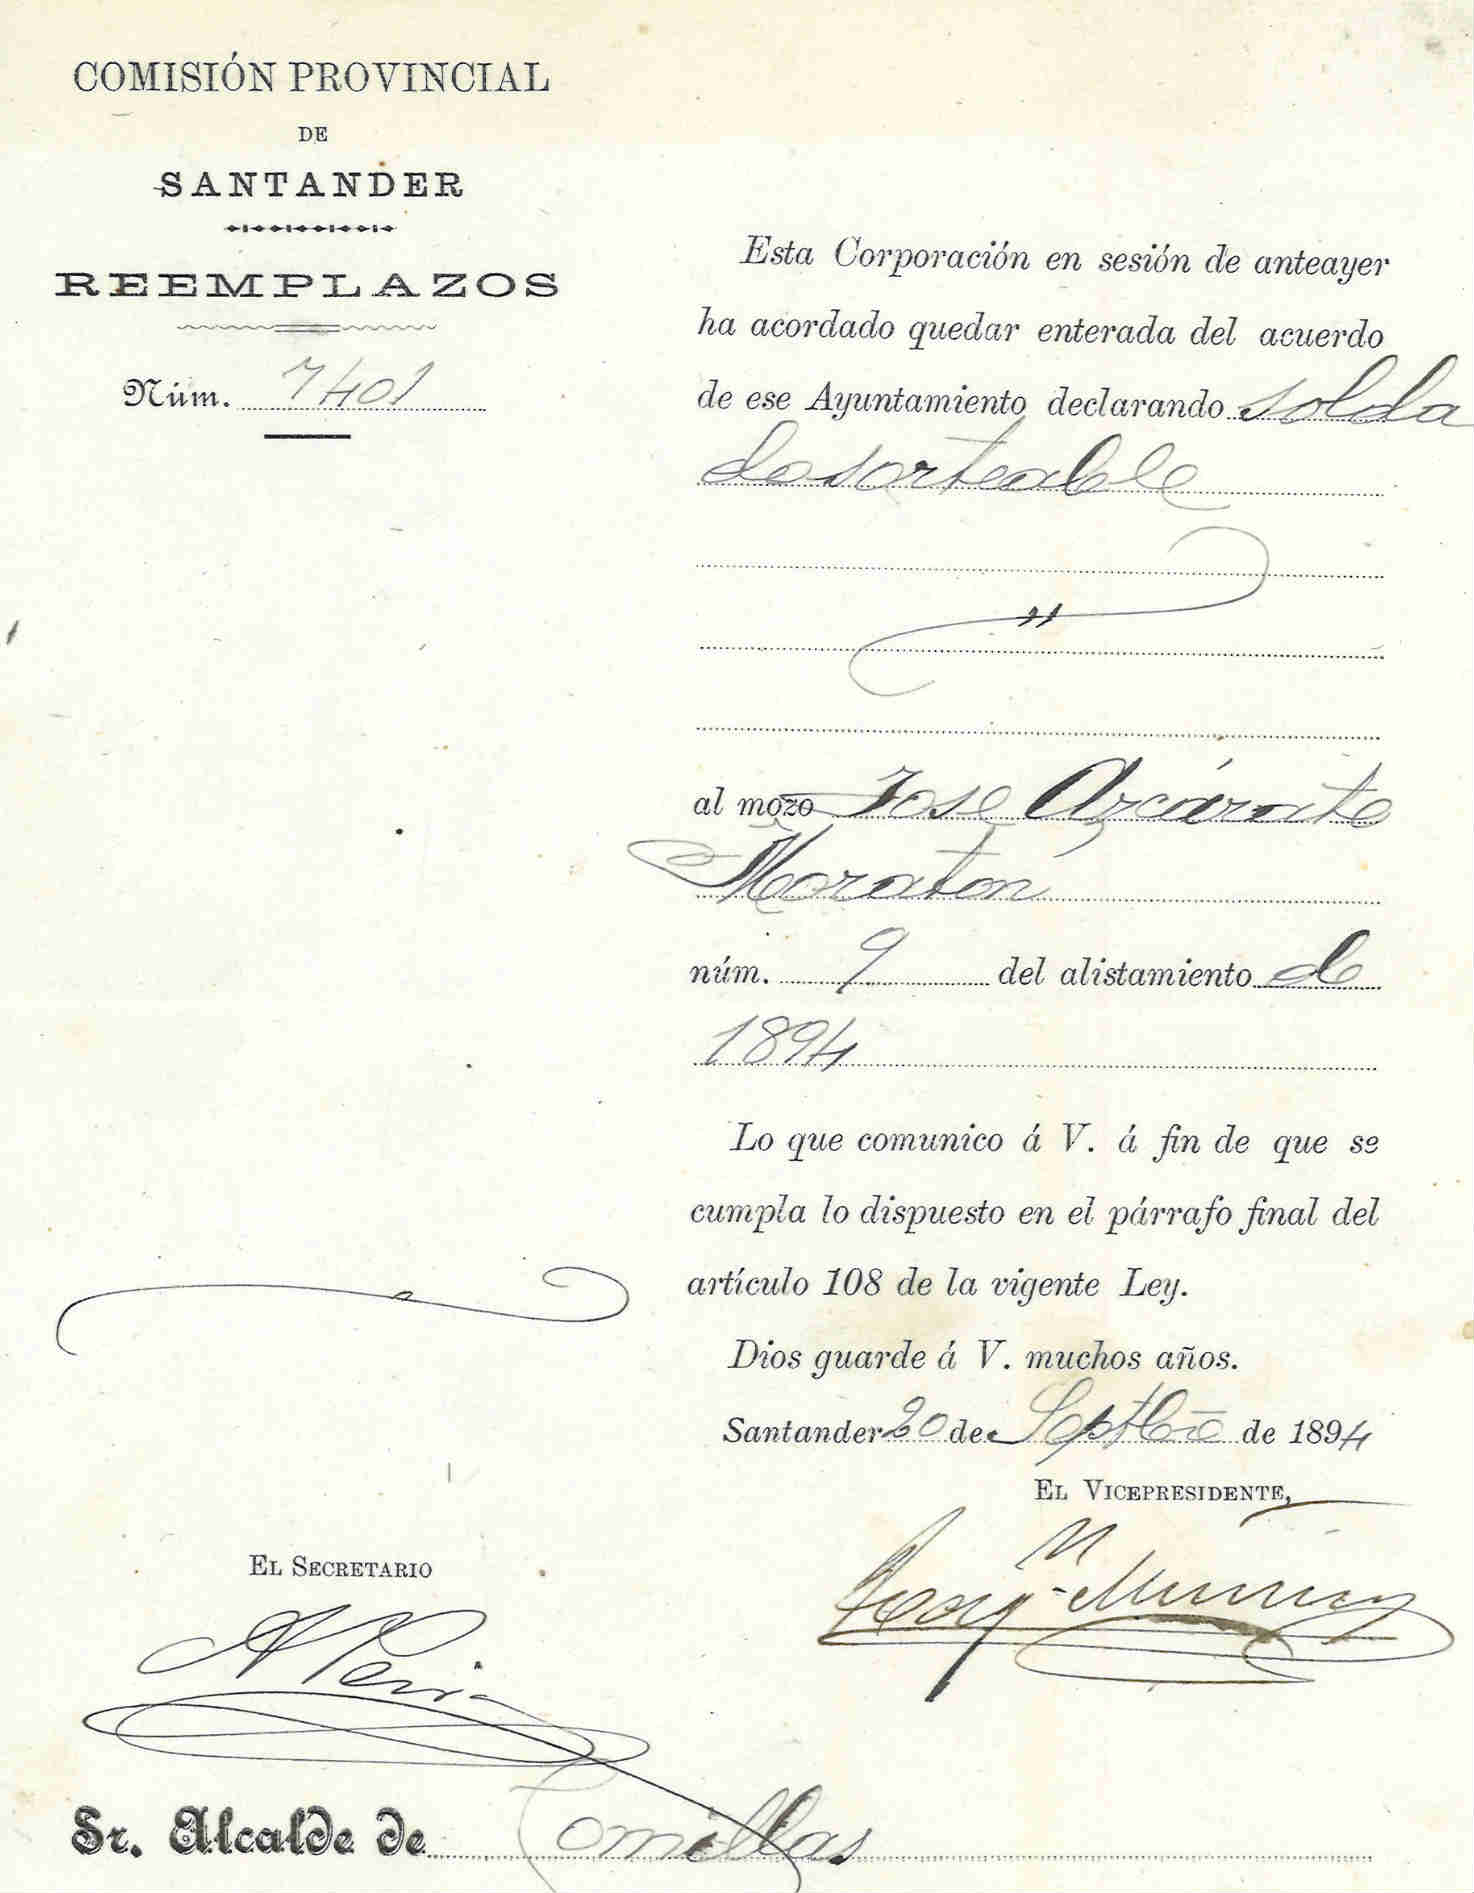 COMISIÓN PROVINCIAL
DE
SANTANDER
REEMPLAZOS
Núm. 7401
Esta Corporación en sesión de anteayer
ha acordado quedar enterada del acuerdo
de ese Ayuntamiento declarando solda
do sorteable
"
al mozo José Azcárate
Moratón
núm. 9 del alistamiento de
1894
Lo que comunico á V. á fin de que se
cumpla lo dispuesto en el párrafo final del
artículo 108 de la vigente Ley.
Dios guarde á V. muchos años.
Santander 20 de Septbre de 1894
EL VICEPRESIDENTE,
EL SECRETARIO
Sr. Alcalde de Comillas